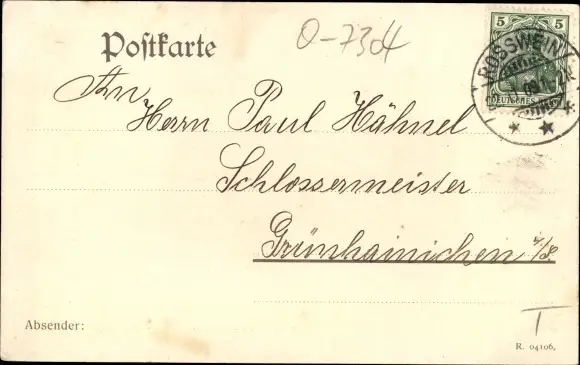 O-7304
Postkarte
5 5
DEUTSCHES
ROSSWEIN
09
An
Herrn Paul Hähnel
Schlossermeister
Grünhainichen i/S.
Absender:
T
R. 04106.